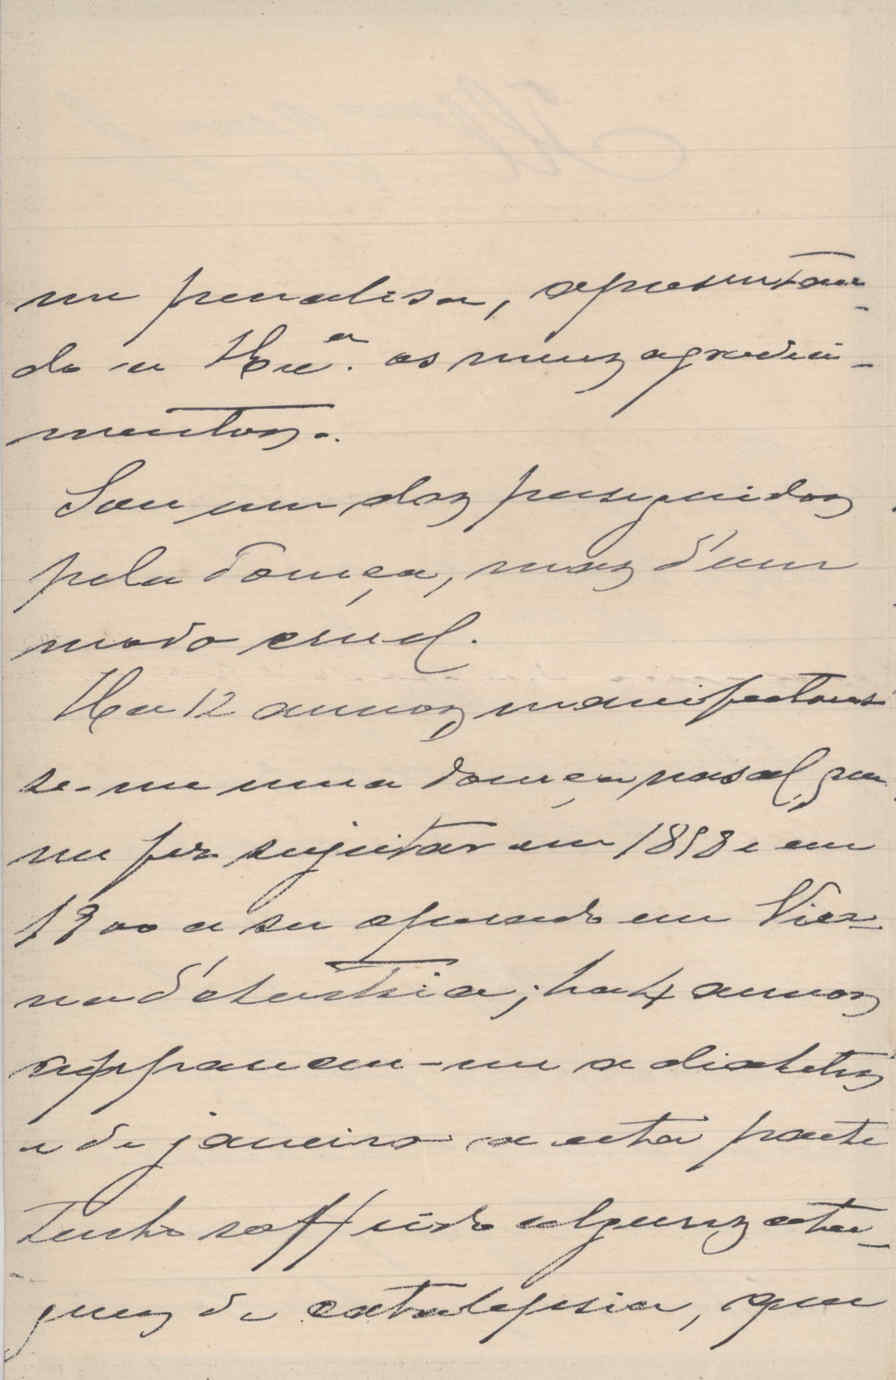 me penalisa, apresentan-
do a V. Ex.ª os meus agradeci-
mentos.
Sou um dos perseguidos
pela doença, mas d'um
modo cruel.
Ha 12 annos manifestou-
se-me uma doença nasal, que
me fez sujeitar em 1898 e em
1900 a ser operado em Vien-
na d'Austria; ha 4 annos
appareceu-me a diabetes
e de janeiro a esta parte
tenho soffrido alguns ata-
ques de catalepsia, que